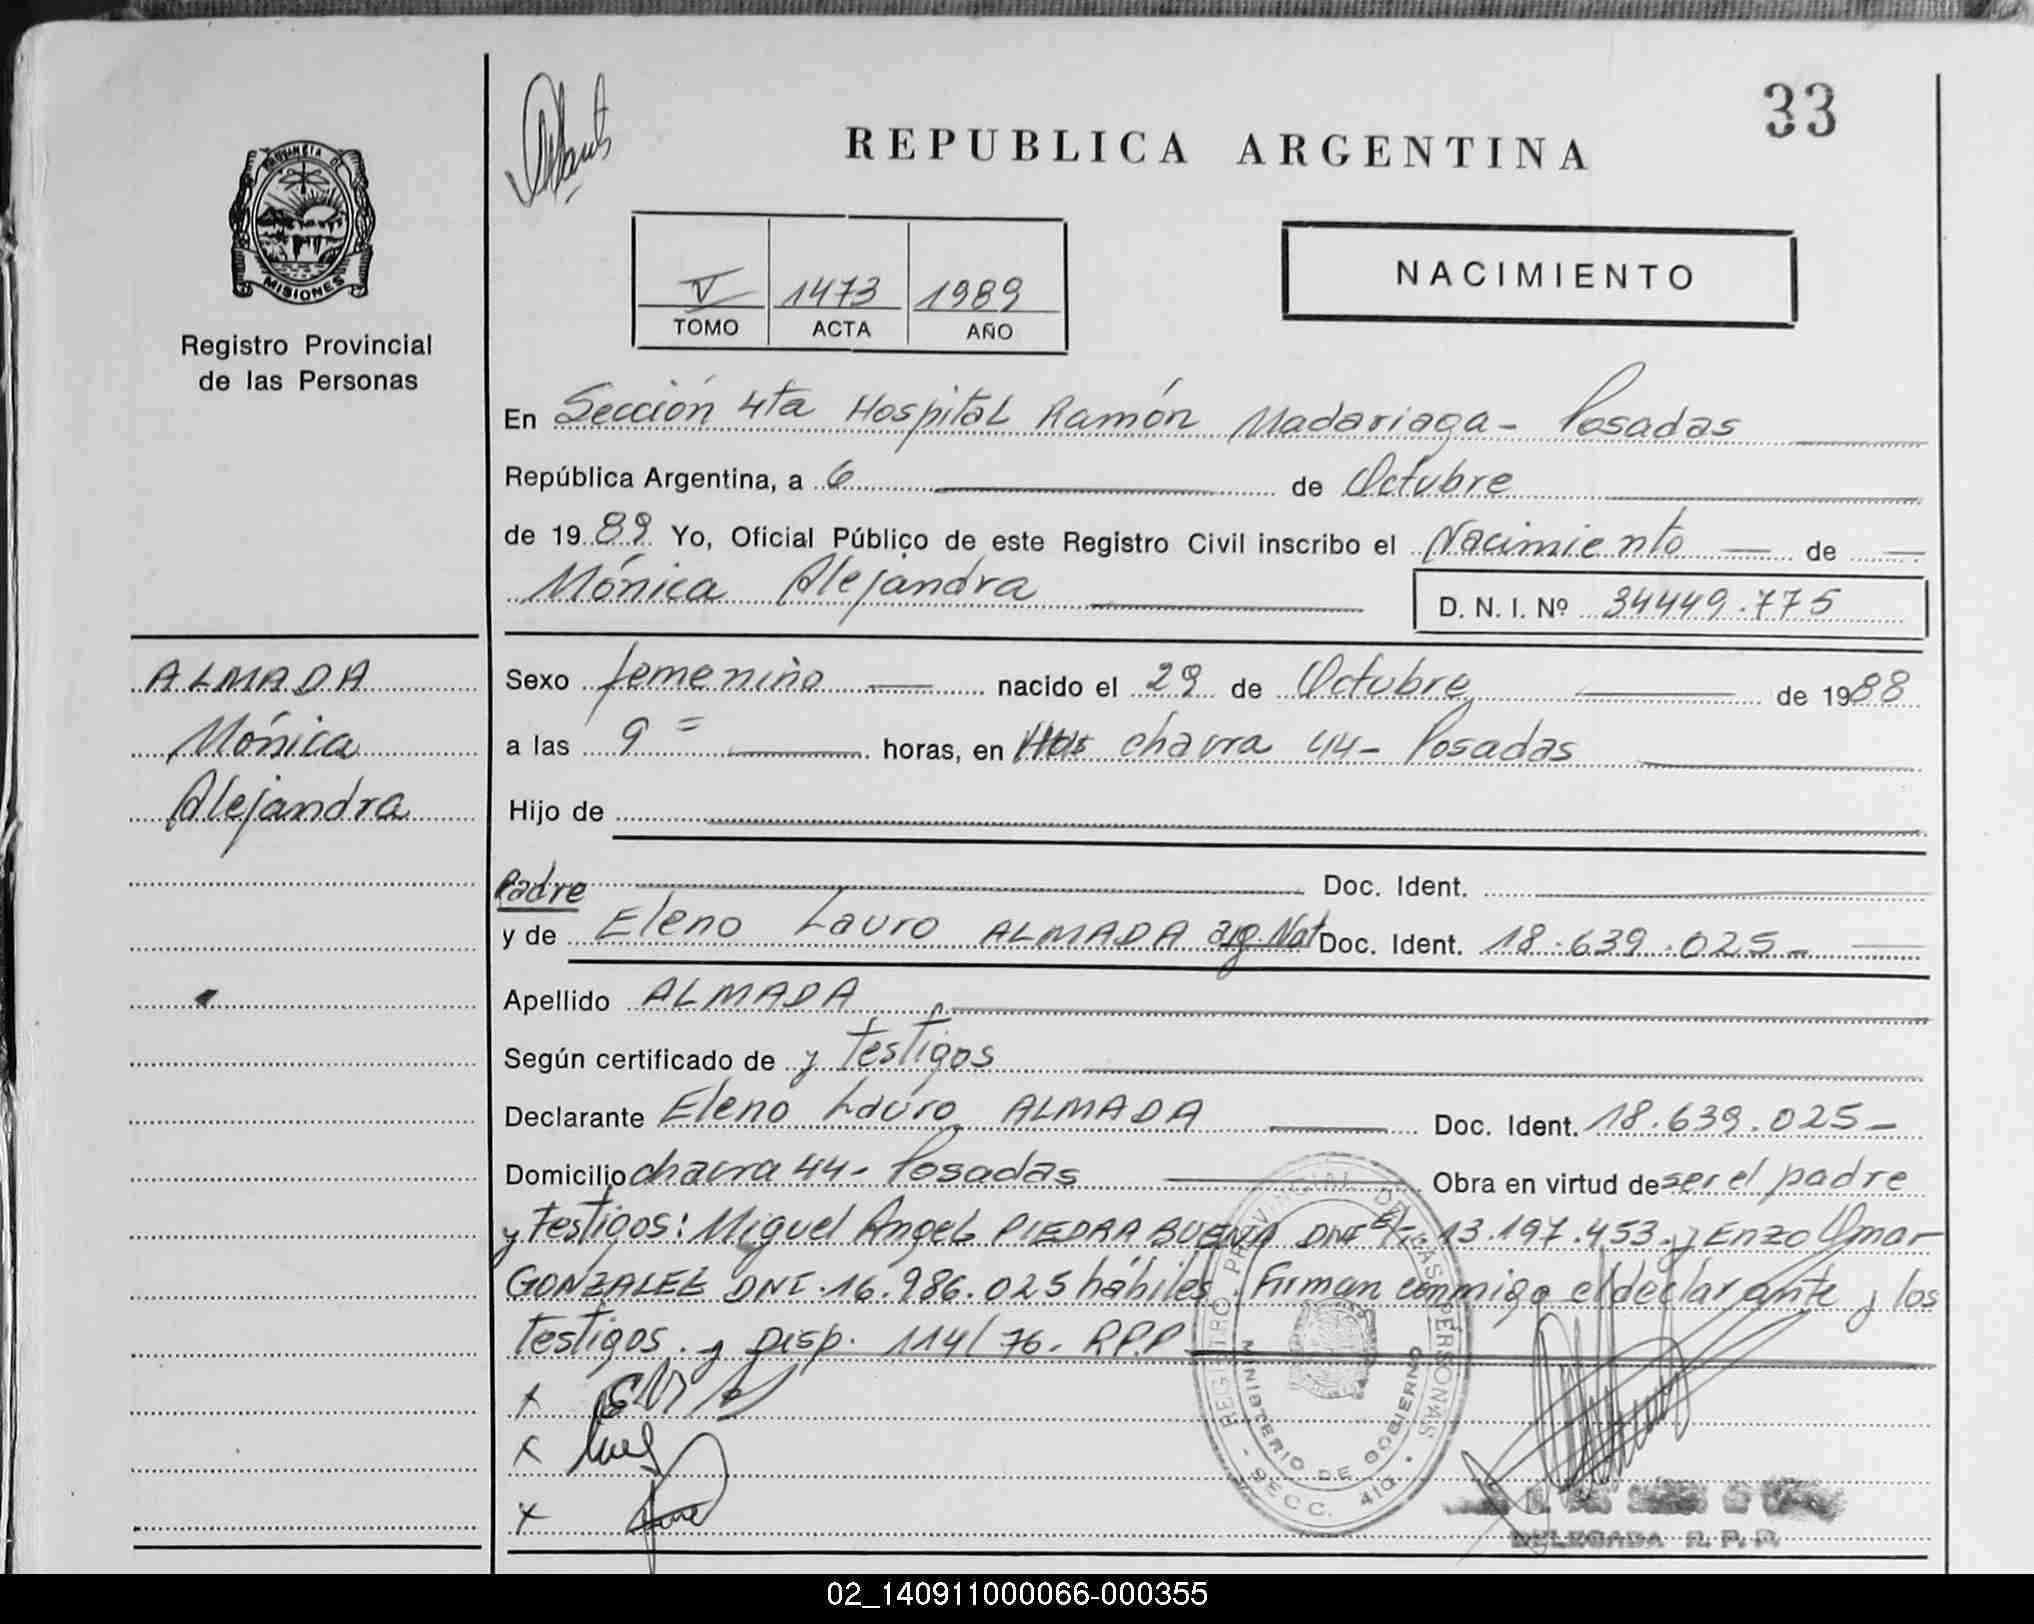 33
REPUBLICA ARGENTINA
PROVINCIA DE
MISIONES
V 1473 1989
TOMO ACTA AÑO
NACIMIENTO
Registro Provincial
de las Personas
En Sección 4ta Hospital Ramón Madariaga - Posadas
República Argentina, a 6 de Octubre
de 1989 Yo, Oficial Público de este Registro Civil inscribo el Nacimiento de
Mónica Alejandra D. N. I. Nº 34449.775
ALMADA
Mónica
Alejandra
Sexo femenino nacido el 29 de Octubre de 1988
a las 9 = horas, en chacra 44 - Posadas
Hijo de
Padre Doc. Ident.
y de Eleno Lauro ALMADA arg. Nat Doc. Ident. 18.639.025 -
Apellido ALMADA
Según certificado de y testigos
Declarante Eleno Lauro ALMADA Doc. Ident. 18.639.025 -
Domicilio chacra 44 - Posadas Obra en virtud de ser el padre
y testigos: Miguel Angel PIEDRA BUENA DNI 13.197.453 y Enzo Omar
GONZALEZ DNI. 16.986.025 hábiles. Firman conmigo el declarante y los
testigos. y Disp. 114/76. R.P.P
REGISTRO PROVINCIAL DE LAS PERSONAS
MINISTERIO DE GOBIERNO
- SECC. 4ta -
DELEGADA R. P. P.
02_140911000066-000355